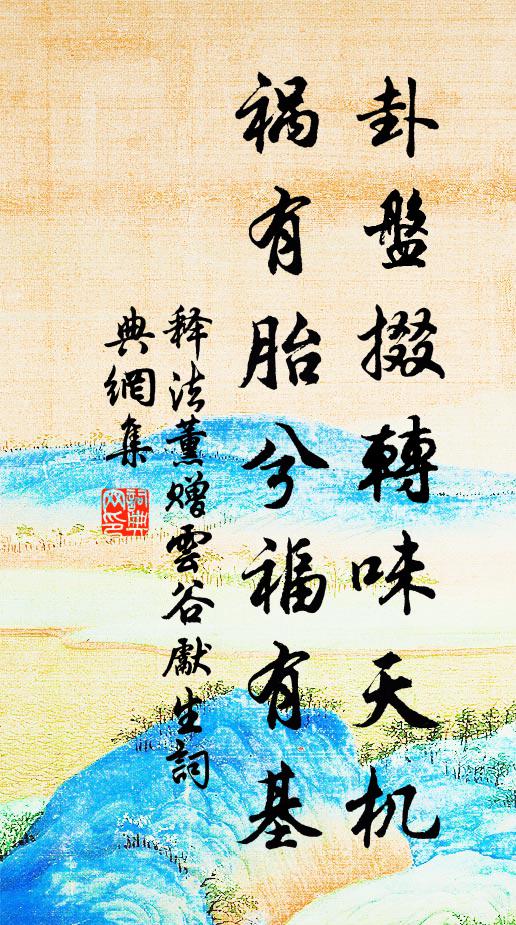 卦盤掇轉味天机
祸有胎兮福有基
释法薰赠雲谷獻生詞
典網集
詞典网印